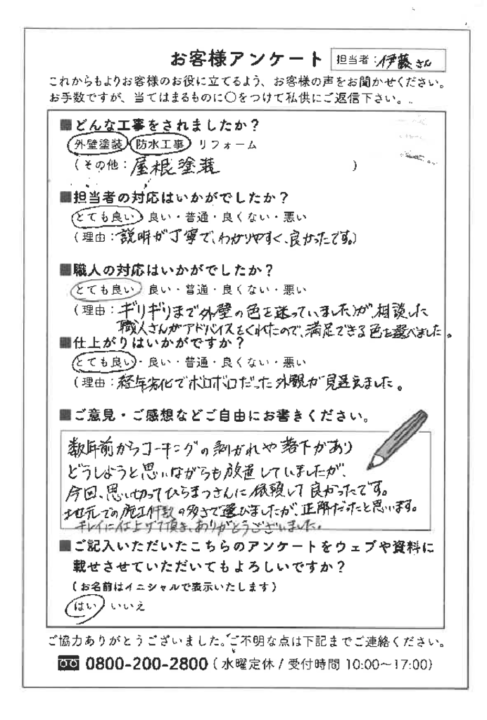 お客様アンケート 担当者:伊藤さん
これからもよりお客様のお役に立てるよう、お客様の声をお聞かせください。
お手数ですが、当てはまるものに〇をつけて私供にご返信下さい。
■どんな工事をされましたか?
外壁塗装・防水工事・リフォーム
(その他:屋根塗装 )
■担当者の対応はいかがでしたか?
とても良い・良い・普通・良くない・悪い
(理由:説明が丁寧で、わかりやすく、良かったです。)
■職人の対応はいかがでしたか?
とても良い・良い・普通・良くない・悪い
(理由:ギリギリまで外壁の色を迷っていましたが、相談した
職人さんがアドバイスをくれたので、満足できる色を選べました。
■仕上がりはいかがですか?
とても良い・良い・普通・良くない・悪い
(理由:経年劣化でボロボロだった外観が見違えました。
■ご意見・ご感想などご自由にお書きください。
数年前からコーキングの剥がれや落下があり
どうしようと思いながらも放置していましたが、
今回、思い切ってひらまつさんに依頼して良かったです。
地元での施工件数の多さで選びましたが、正解だったと思います。
キレイに仕上げて頂き、ありがとうございました。
■ご記入いただいたこちらのアンケートをウェブや資料に
載せさせていただいてもよろしいですか?
(お名前はイニシャルで表示いたします)
はい・いいえ
ご協力ありがとうございました。ご不明な点は下記までご連絡ください。
0800-200-2800(水曜定休/受付時間 10:00~17:00)